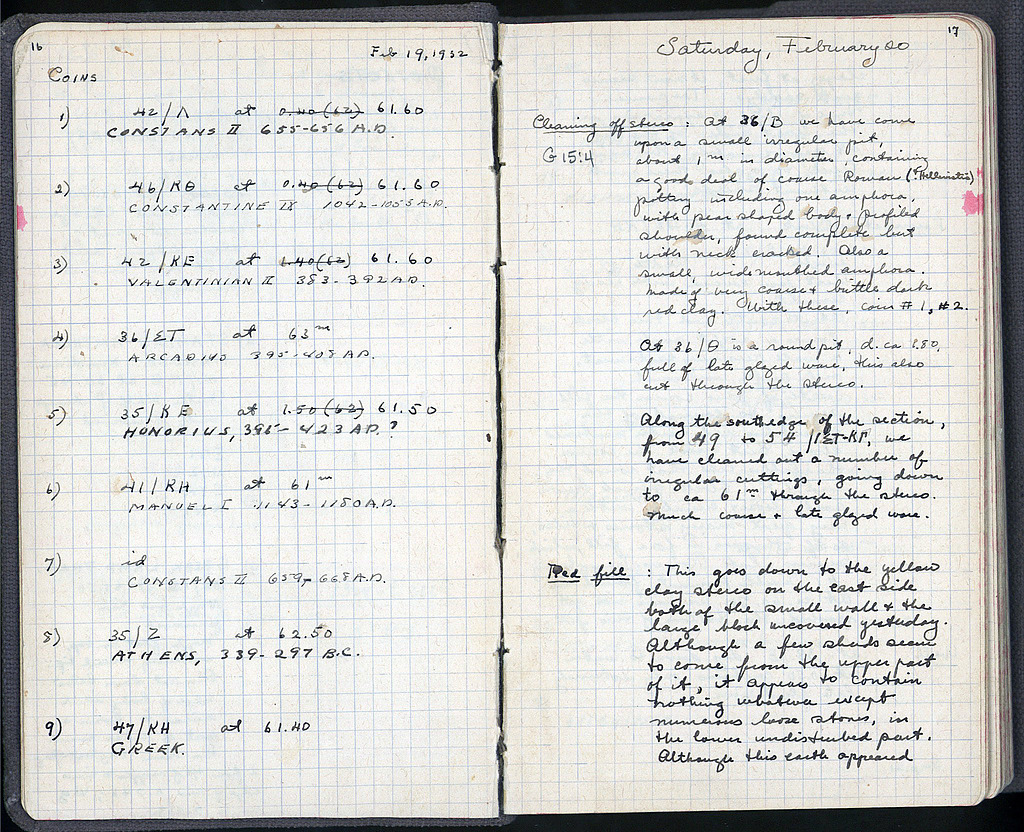 16
Feb 19, 1932
COINS
1) 42/Λ at 0.40 (62) 61.60
CONSTANS II 655-656 A.D.
2) 46/ΚΘ at 0.40 (62) 61.60
CONSTANTINE IX 1042-1055 A.D.
3) 42/ΚΕ at 1.40 (62) 61.60
VALENTINIAN II 383-392 A.D.
4) 36/ΣΤ at 63 m
ARCADIUS 395-408 A.D.
5) 35/ΚΕ at 1.50 (62) 61.50
HONORIUS, 395-423 A.D. ?
6) 41/ΚΗ at 61 m
MANUEL I 1143-1180 A.D.
7) id
CONSTANS II 659-668 A.D.
8) 35/Ζ at 62.50
ATHENS, 339-297 B.C.
9) 47/ΚΗ at 61.40
GREEK.
17
Saturday, February 20
Cleaning off stereo : At 36/Β we have come
upon a small irregular pit,
G 15:4
about 1 m in diameter, containing
a good deal of coarse Roman (? Hellenistic)
pottery including one amphora,
with pear shaped body + profiled
shoulder, found complete but
with neck cracked. Also a
small, wide mouthed amphora.
made of very coarse + brittle dark
red clay. With these, coin # 1, # 2.
At 36/Θ is a round pit, d. ca 1.80,
full of late glazed ware, this also
cut through the stereo.
Along the south edge of the section,
from 49 to 54 /ΙΣΤ-ΚΓ, we
have cleaned out a number of
irregular cuttings, going down
to ca 61 m through the stereo.
Much coarse + late glazed ware.
Red fill : This goes down to the yellow
clay stereo on the east side
both of the small wall + the
large block uncovered yesterday.
Although a few sherds seem
to come from the upper part
of it, it appears to contain
nothing whatever except
numerous loose stones, in
the lower undisturbed part.
Although this earth appeared